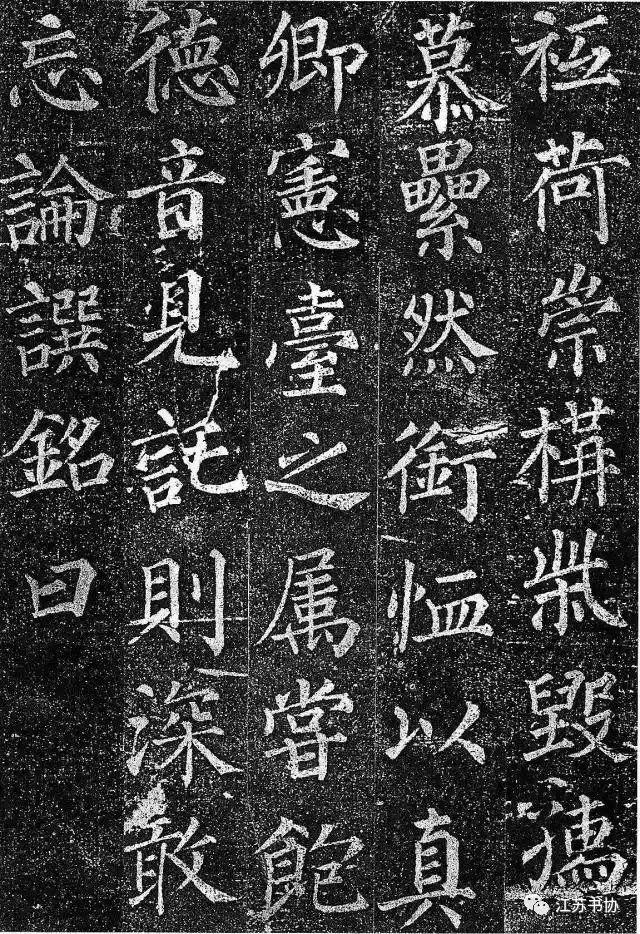 祗荷崇構柴毀孺
慕纍然銜恤以真
卿憲臺之属嘗飽
德音見託則深敢
忘論譔銘曰
江苏书协